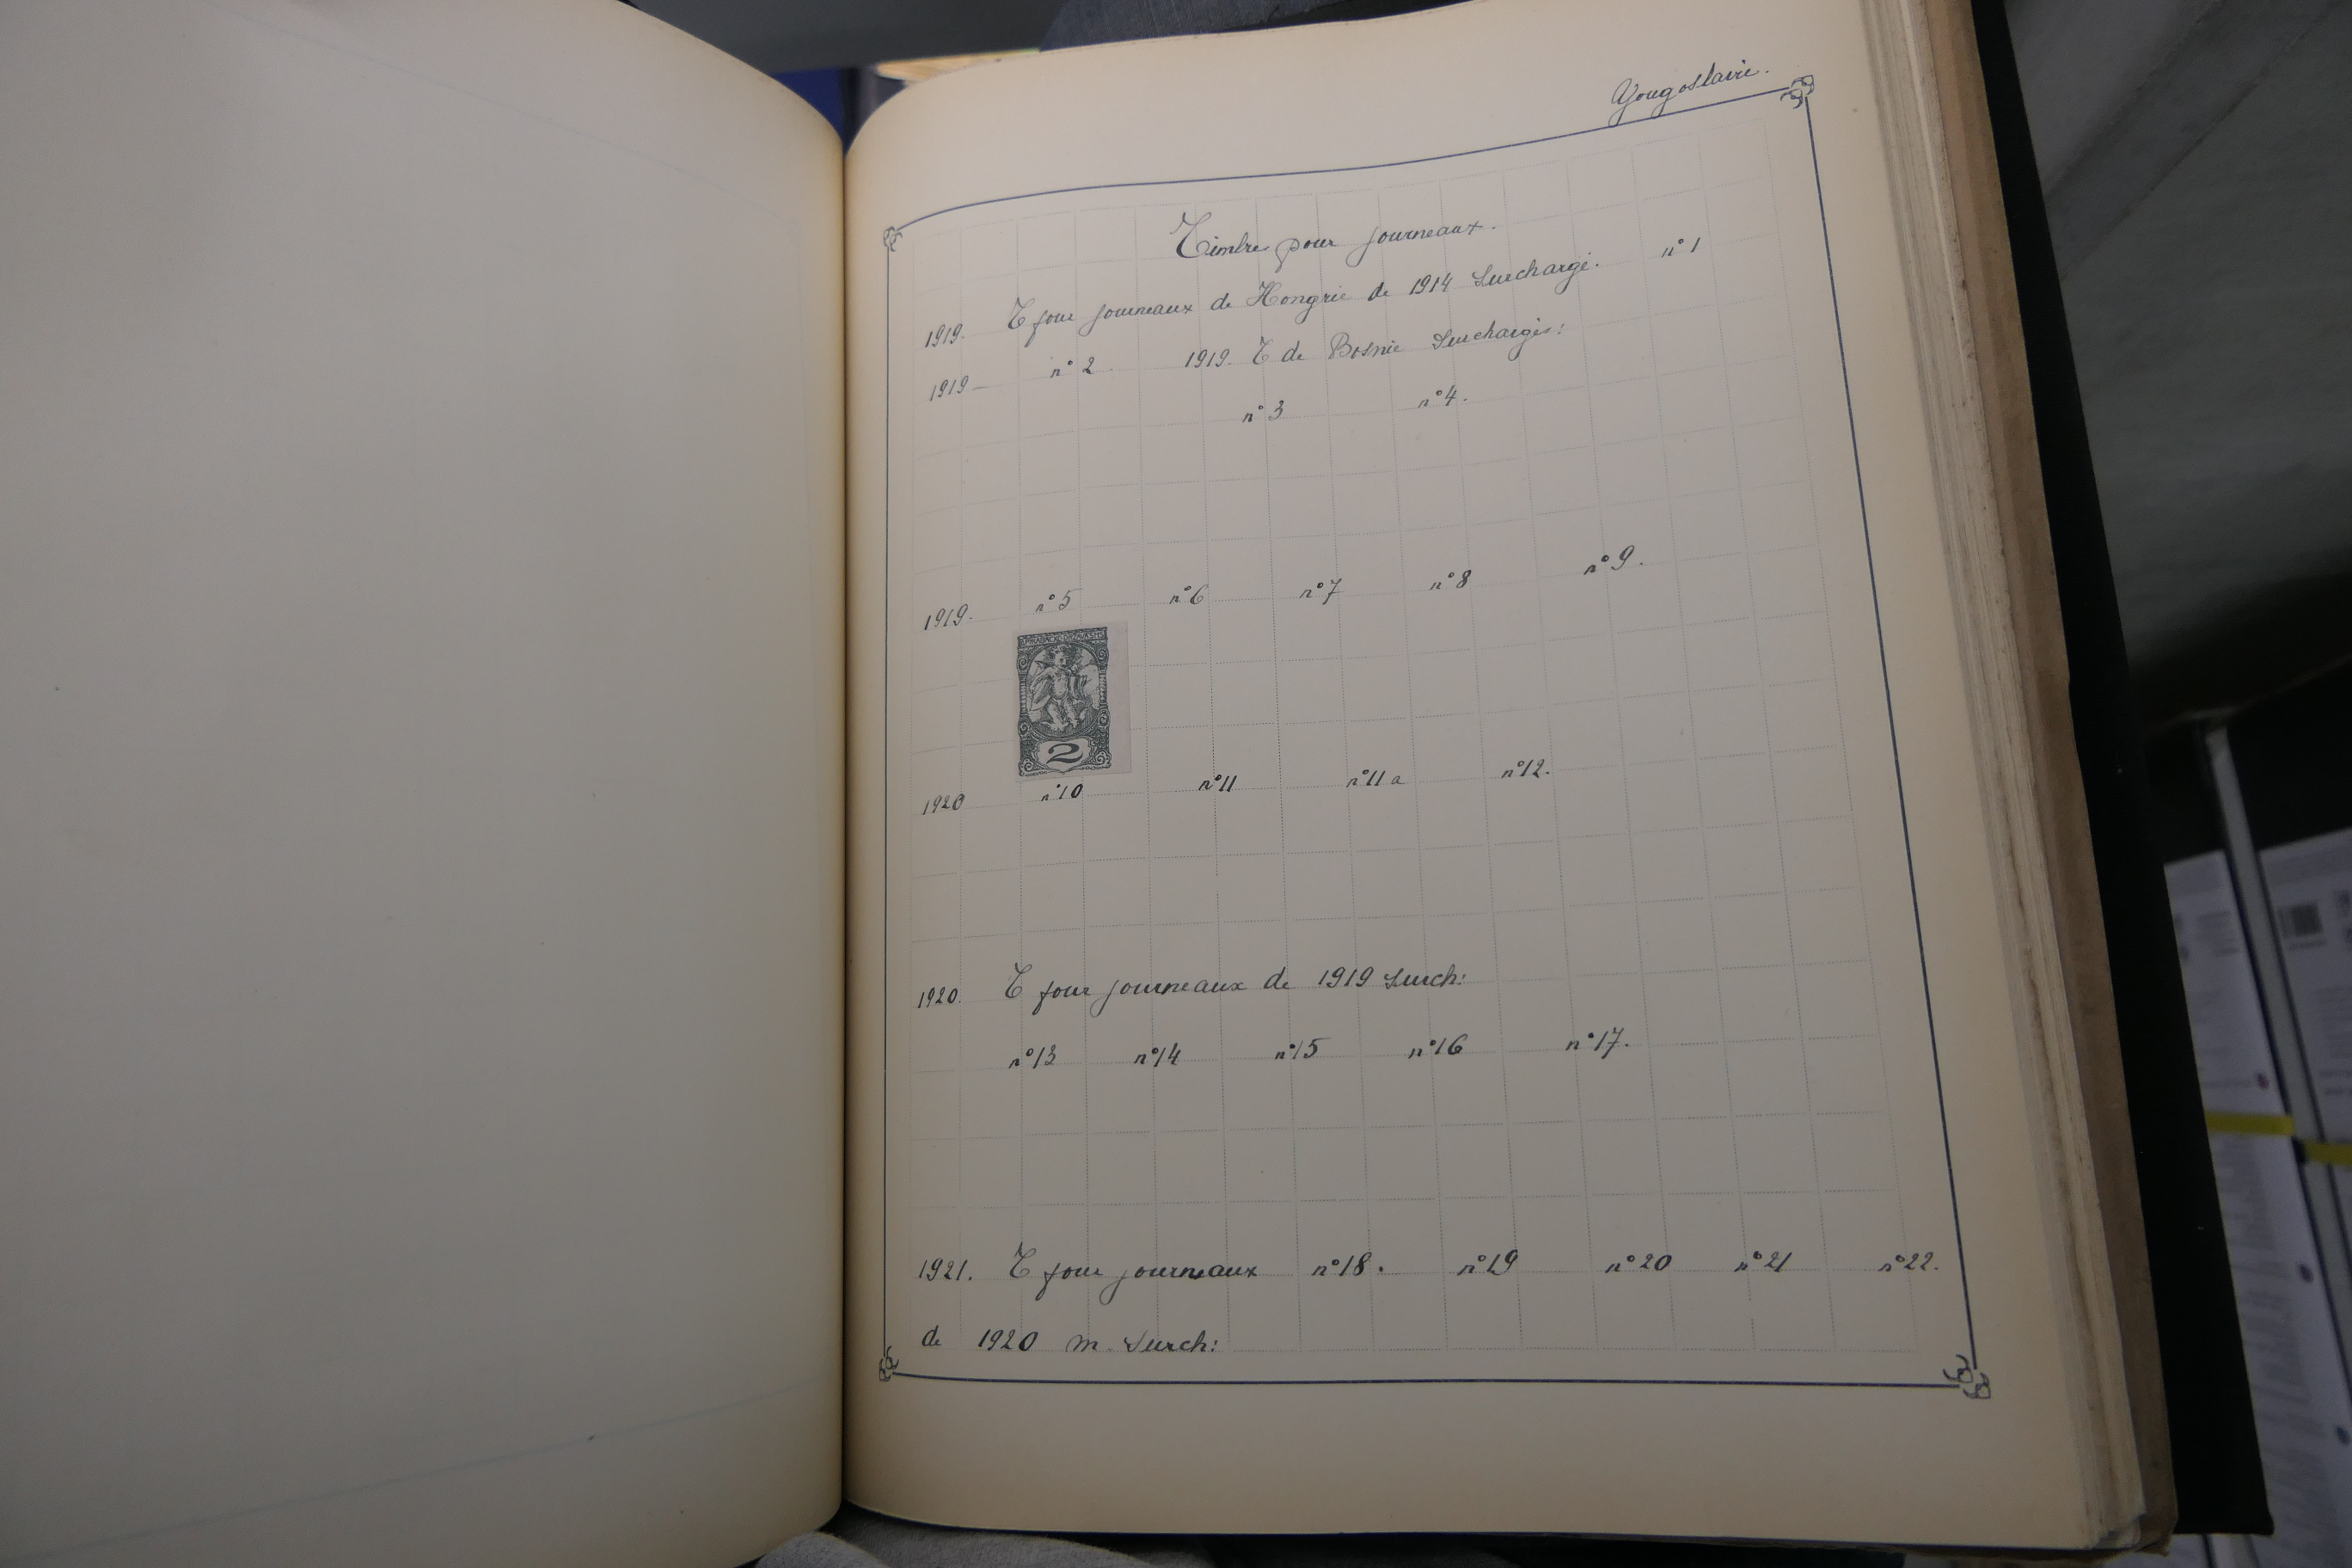 Yougoslavie.
Timbre pour journeaux.
1919. T pour journeaux de Hongrie de 1914 Surchargé. n° 1
1919 — n° 2. 1919. T de Bosnie Surchargés:
n° 3 n° 4.
1919. n° 5 n° 6 n° 7 n° 8 n° 9.
2
1920 n° 10 n° 11 n° 11 a n° 12.
1920. T pour journeaux de 1919 Surch:
n° 13 n° 14 n° 15 n° 16 n° 17.
1921. T pour journeaux n° 18. n° 19 n° 20 n° 21 n° 22.
de 1920 m. Surch: